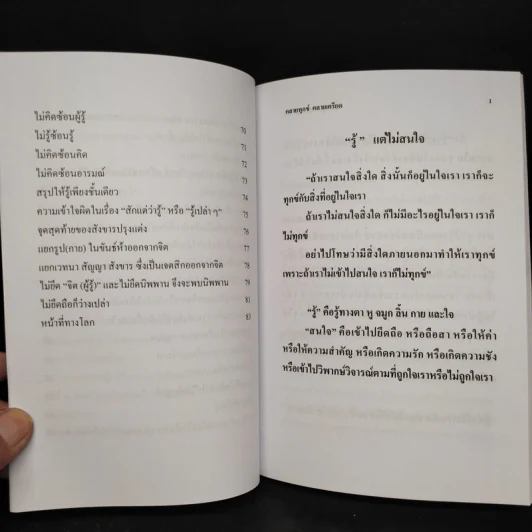 ไม่คิดซ้อนผู้รู้ 70
ไม่รู้ซ้อนรู้ 71
ไม่คิดซ้อนคิด 72
ไม่คิดซ้อนอารมณ์ 73
สรุปให้รู้เพียงชั้นเดียว 74
ความเข้าใจผิดในเรื่อง “สักแต่ว่ารู้” หรือ “รู้เปล่า ๆ” 75
จุดสุดท้ายของสังขารปรุงแต่ง 76
แยกรูป(กาย) ในขันธ์ห้าออกจากจิต 77
แยกเวทนา สัญญา สังขาร ซึ่งเป็นเจตสิกออกจากจิต 78
ไม่ยึด “จิต (ผู้รู้)” และไม่ยึดนิพพาน จึงจะพบนิพพาน 79
ไม่ยึดถือก็ว่างเปล่า 81
หน้าที่ทางโลก 83
คลายทุกข์ คลายเครียด 1
“รู้ ” แต่ไม่สนใจ
“ถ้าเราสนใจสิ่งใด สิ่งนั้นก็อยู่ในใจเรา เราก็จะ
ทุกข์กับสิ่งที่อยู่ในใจเรา
ถ้าเราไม่สนใจสิ่งใด ก็ไม่มีอะไรอยู่ในใจเรา เราก็
ไม่ทุกข์
อย่าไปโทษว่ามีสิ่งใดภายนอกมาทำให้เราทุกข์
เพราะถ้าเราไม่เข้าไปสนใจ เราก็ไม่ทุกข์”
“รู้” คือรู้ทางตา หู จมูก ลิ้น กาย และใจ
“สนใจ” คือเข้าไปยึดถือ หรือถือสา หรือให้ค่า
หรือให้ความสำคัญ หรือเกิดความรัก หรือเกิดความชัง
หรือเข้าไปวิพากษ์วิจารณ์ตามที่ถูกใจเราหรือไม่ถูกใจเรา